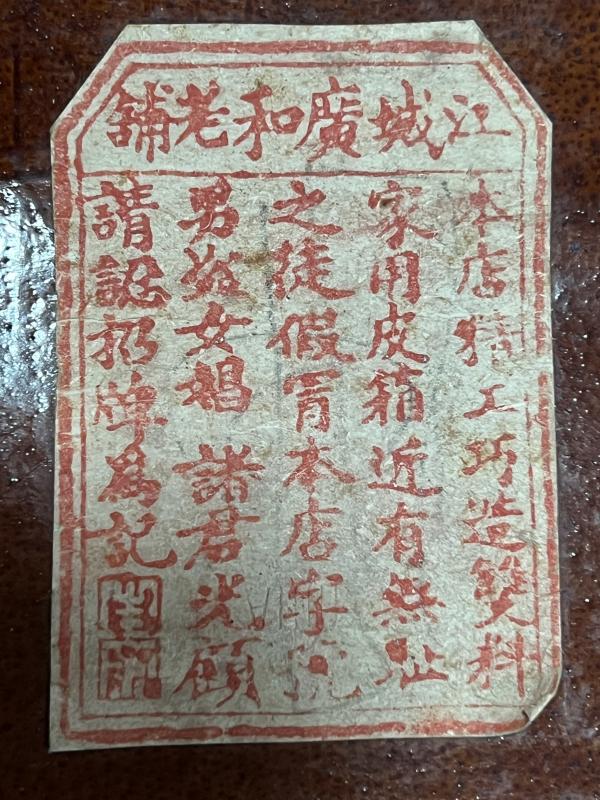 江城廣和老舖
本店精工巧造雙料
家用皮箱近有無恥
之徒假冒本店字號
男盜女娼 諸君光顧
請認招牌為記